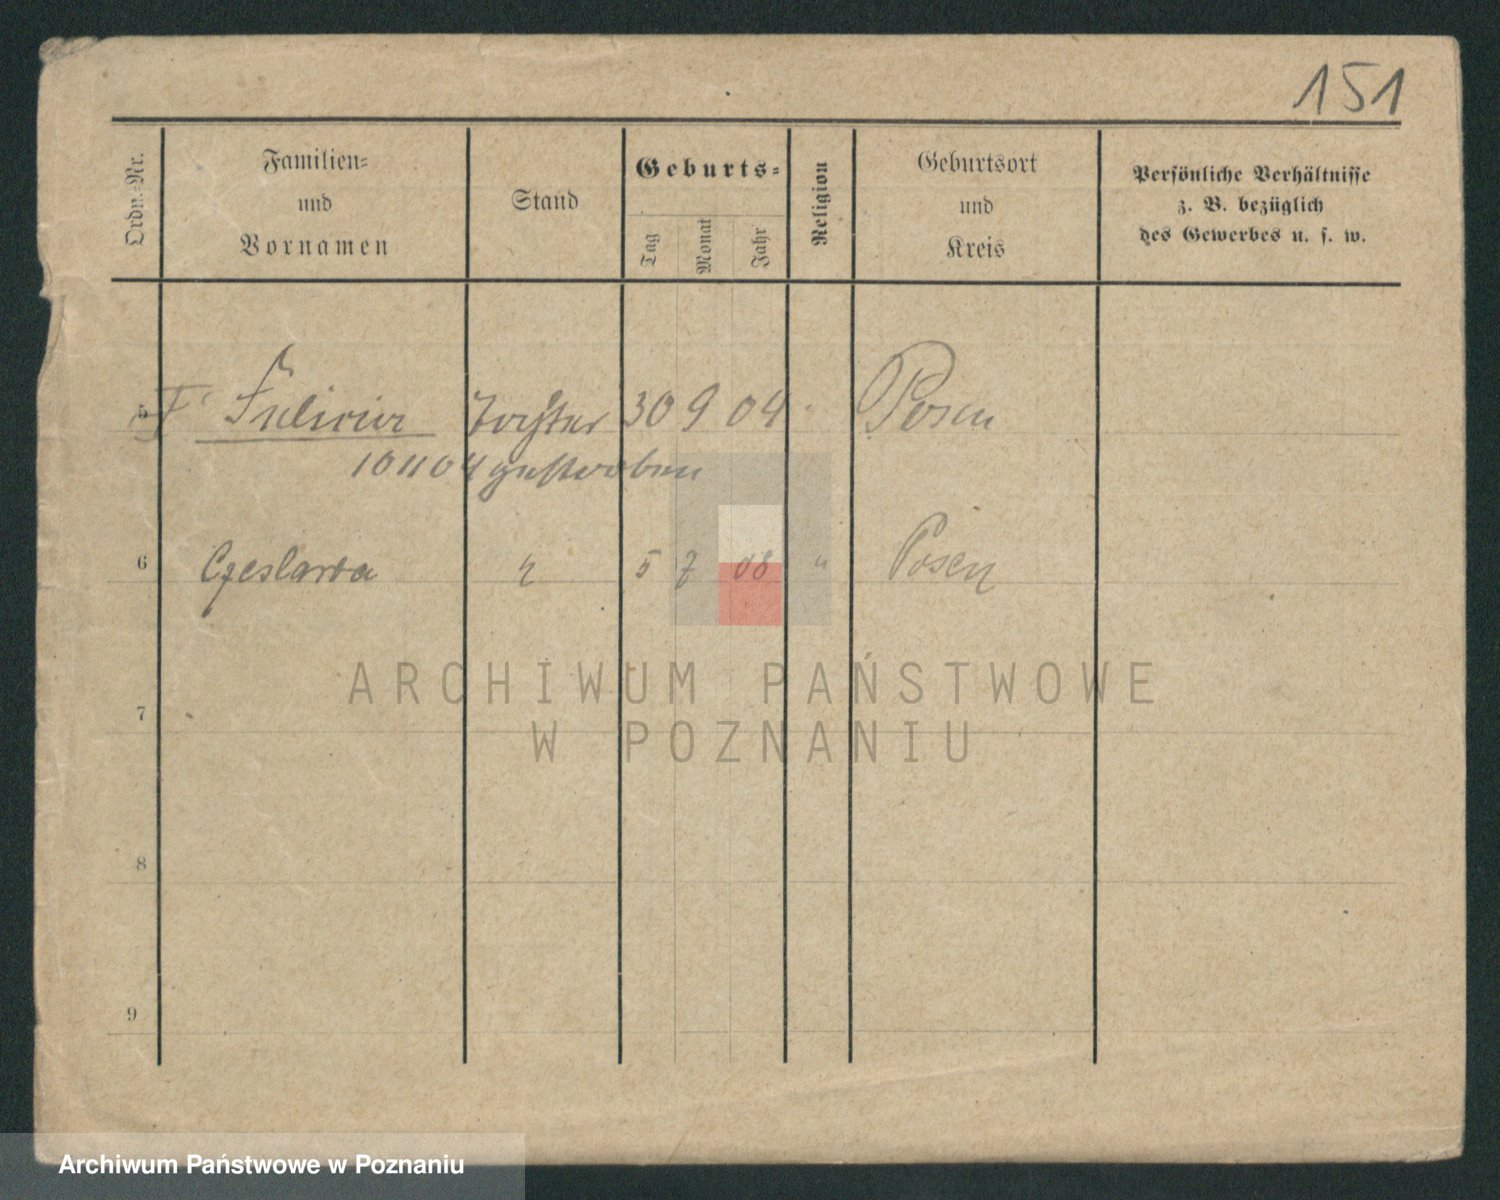 151
Ordn.-Nr.
Familien-
und
Vornamen
Stand
Geburts-
Tag
Monat
Jahr
Religion
Geburtsort
und
Kreis
Persönliche Verhältnisse
z. B. bezüglich
des Gewerbes u. s. w.
5 Tochter 30 9 04 " Posen
10 11 04 gestorben
6 Czeslawa " 5 7 08 " Posen
ARCHIWUM PAŃSTWOWE
W POZNANIU
7
8
9
Archiwum Państwowe w Poznaniu